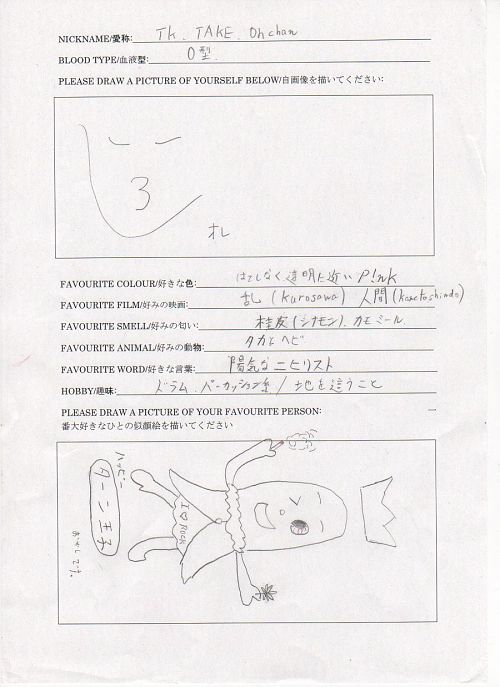 NICKNAME/愛称: TK. TAKE. Ohchan
BLOOD TYPE/血液型: O型.
PLEASE DRAW A PICTURE OF YOURSELF BELOW/自画像を描いてください:
オレ
FAVOURITE COLOUR/好きな色: はてしなく透明に近い P!nk
FAVOURITE FILM/好みの映画: 乱 (Kurosawa) 人間 (Kanetoshindo)
FAVOURITE SMELL/好みの匂い: 桂皮 (シナモン). カモミール
FAVOURITE ANIMAL/好みの動物: タカとヘビ
FAVOURITE WORD/好きな言葉: 陽気なニヒリスト
HOBBY/趣味: ドラム、パーカッション系 / 地を這うこと
PLEASE DRAW A PICTURE OF YOUR FAVOURITE PERSON:
一番大好きなひとの似顔絵を描いてください
I ♡ ROCK
ハッピー
ターン王子